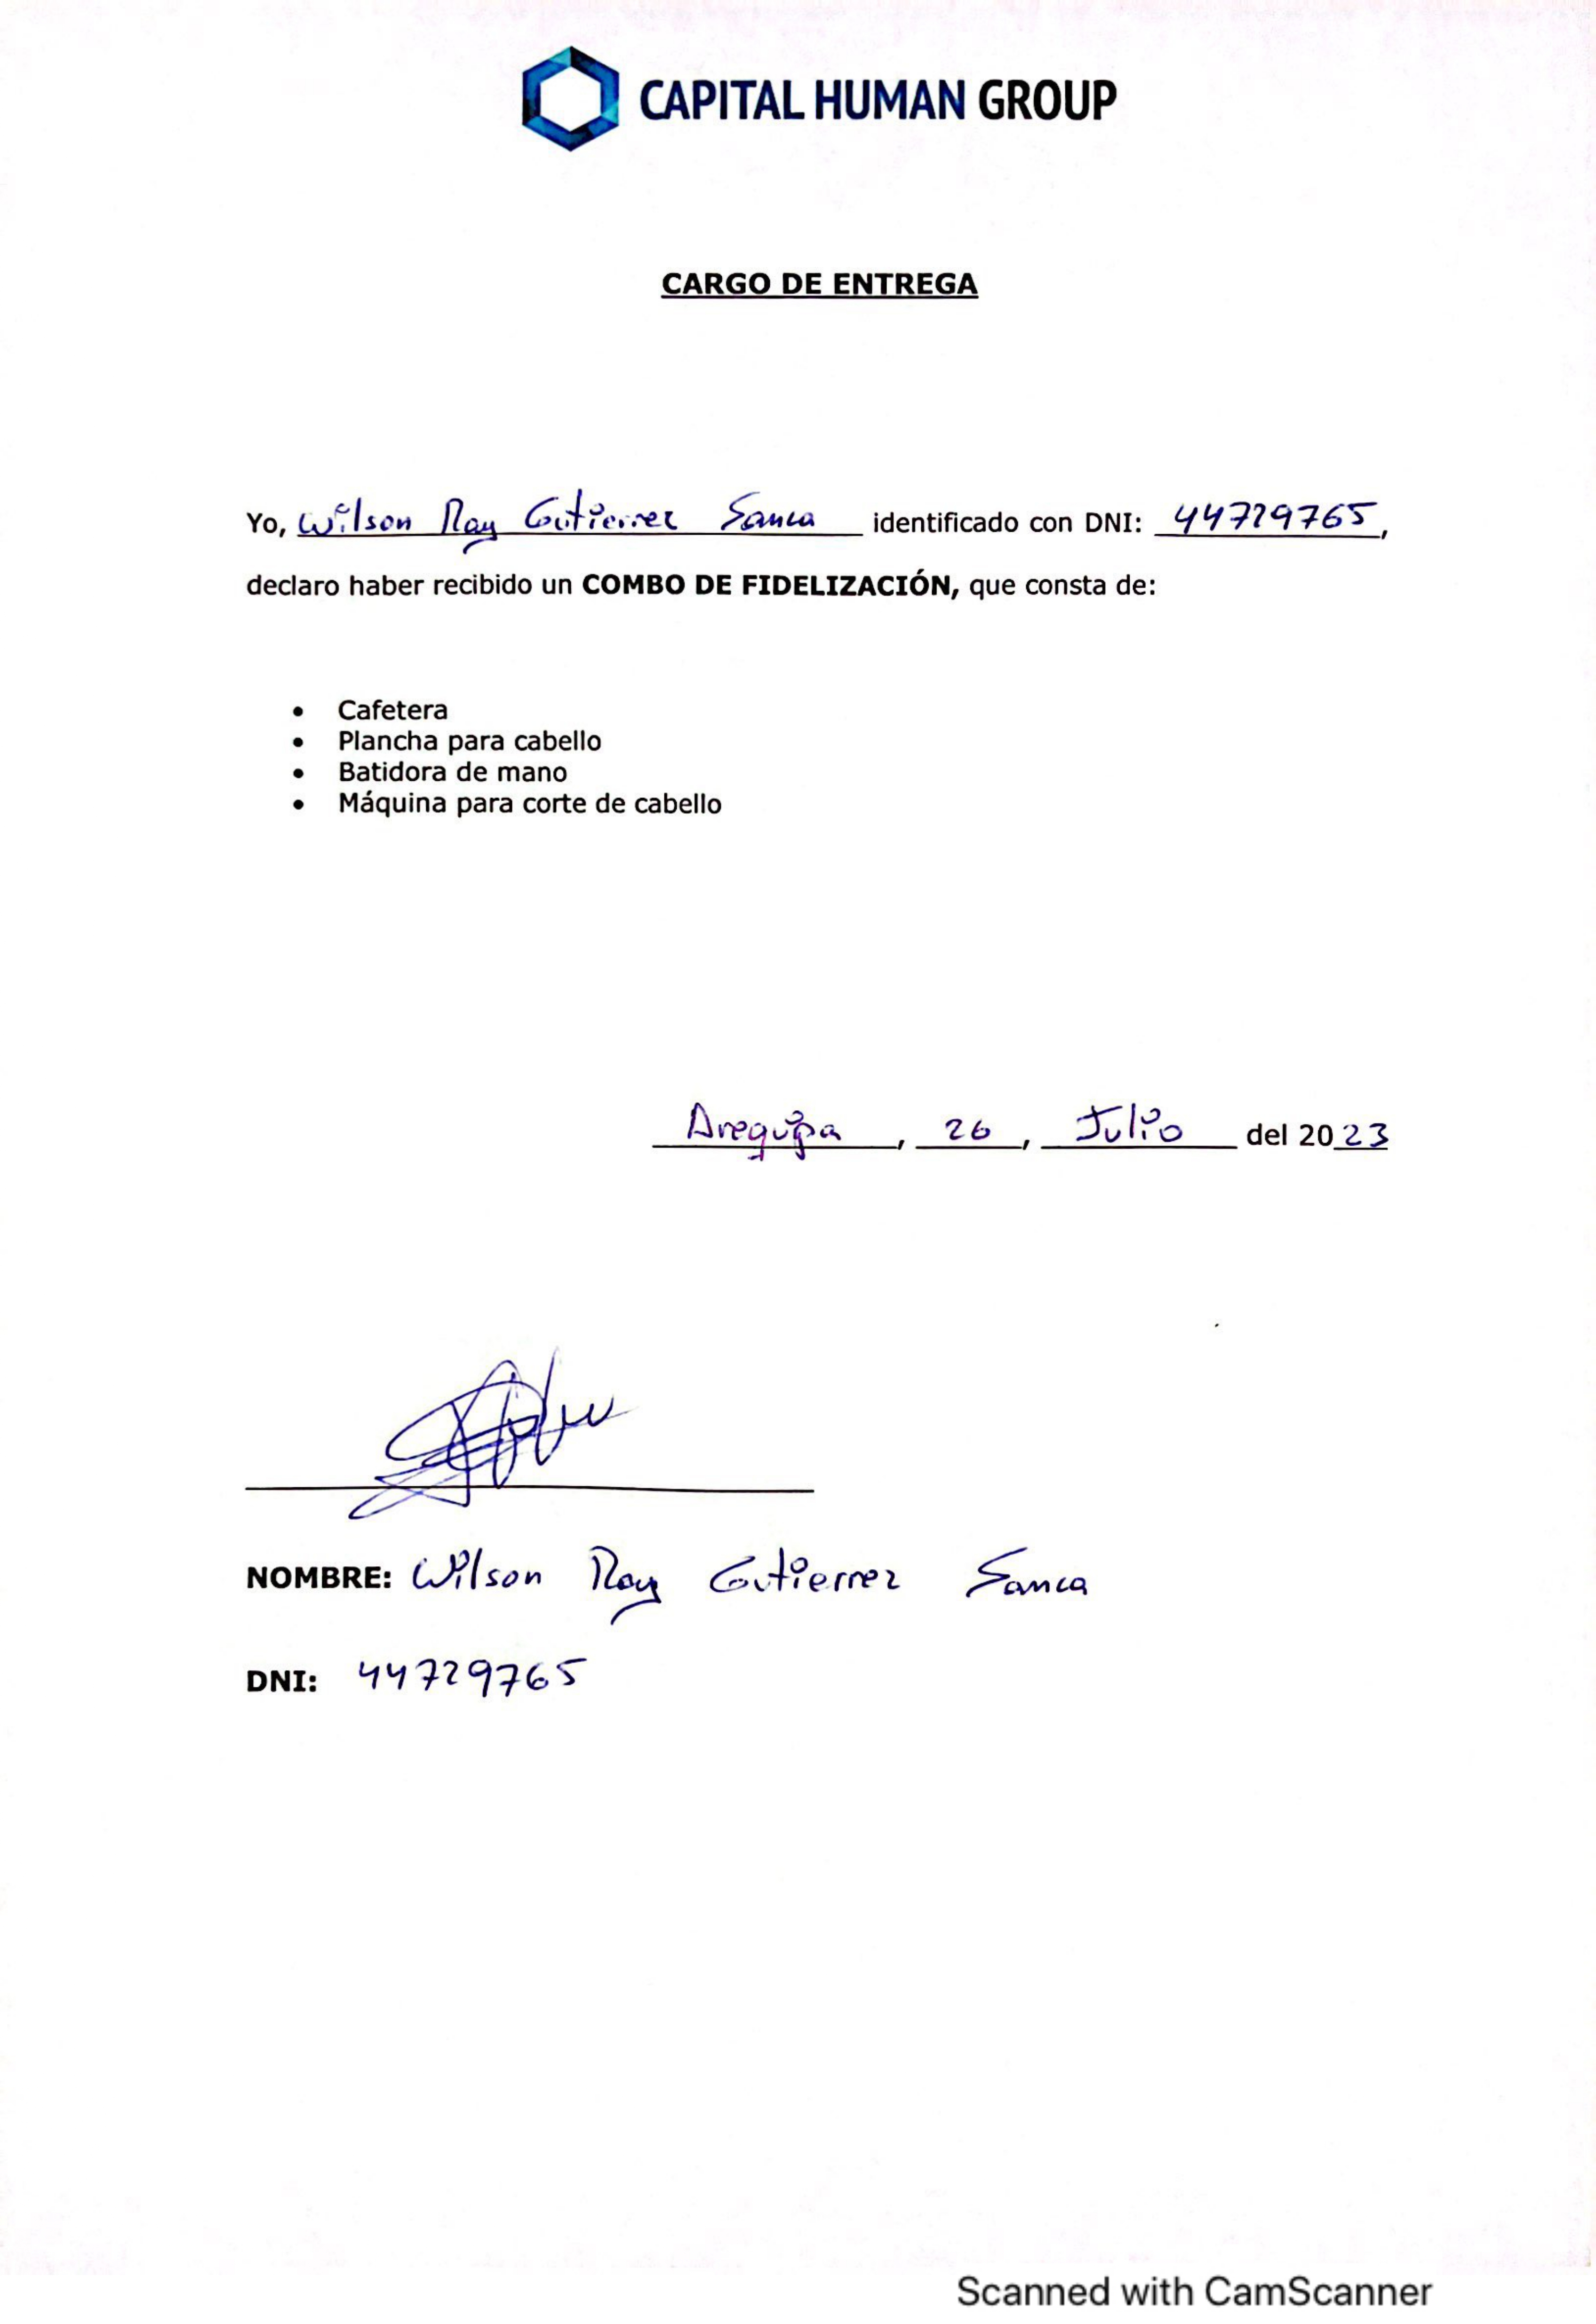 CAPITAL HUMAN GROUP
CARGO DE ENTREGA
Yo, Wilson Ray Gutierrez Sanca identificado con DNI: 44729765,
declaro haber recibido un COMBO DE FIDELIZACIÓN, que consta de:
• Cafetera
• Plancha para cabello
• Batidora de mano
• Máquina para corte de cabello
Arequipa, 26, Julio del 2023
NOMBRE: Wilson Ray Gutierrez Sanca
DNI: 44729765
Scanned with CamScanner